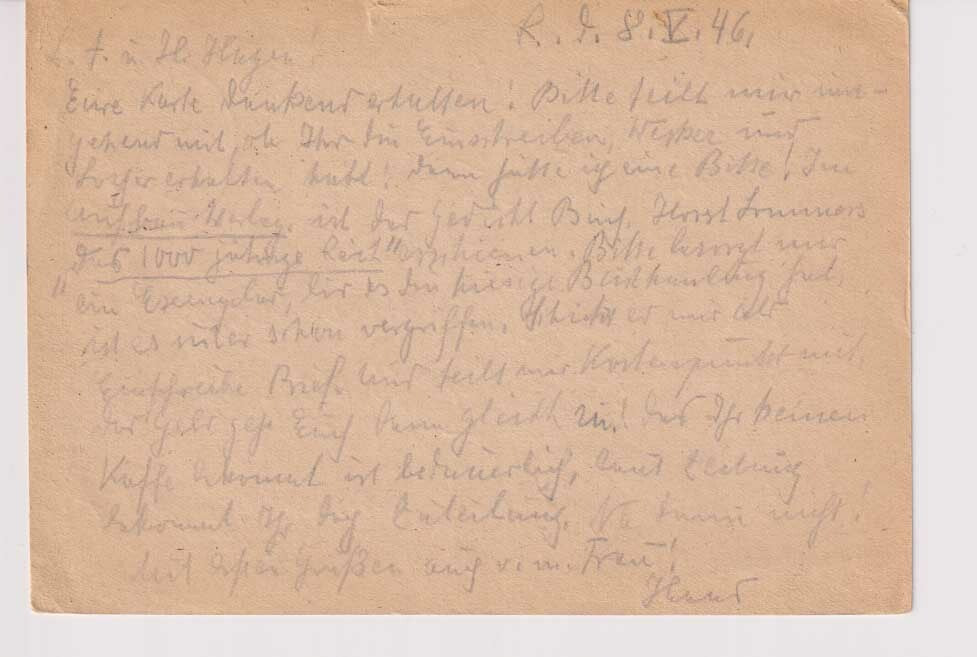 K. d. 8. V. 46.
L. F. u. H. Hagen!
Eure Karte dankend erhalten! Bitte teilt mir um-
gehend mit, ob Ihr die Einschreiben, und
erhalten habt! Dann hätte ich eine Bitte! Im
Aufbau Verlag, ist das Gedicht Buch, Horst Lommers
"Das 1000 jährige Reich" erschienen. Bitte besorgt mir
ein Exemplar, hiesige Buchhandlung hat,
ist es schon vergriffen. Schickt es mir als
Einschreibe Brief. Und teilt mir Kostenpunkt mit,
das Geld geht Euch dann gleich zu! Das Ihr keinen
Kaffe bekommt ist bedauerlich, laut Zeitung
bekommt Ihr doch Zuteilung. Na dann nicht!
Mit besten Grüßen auch v. m. Frau!
Hans